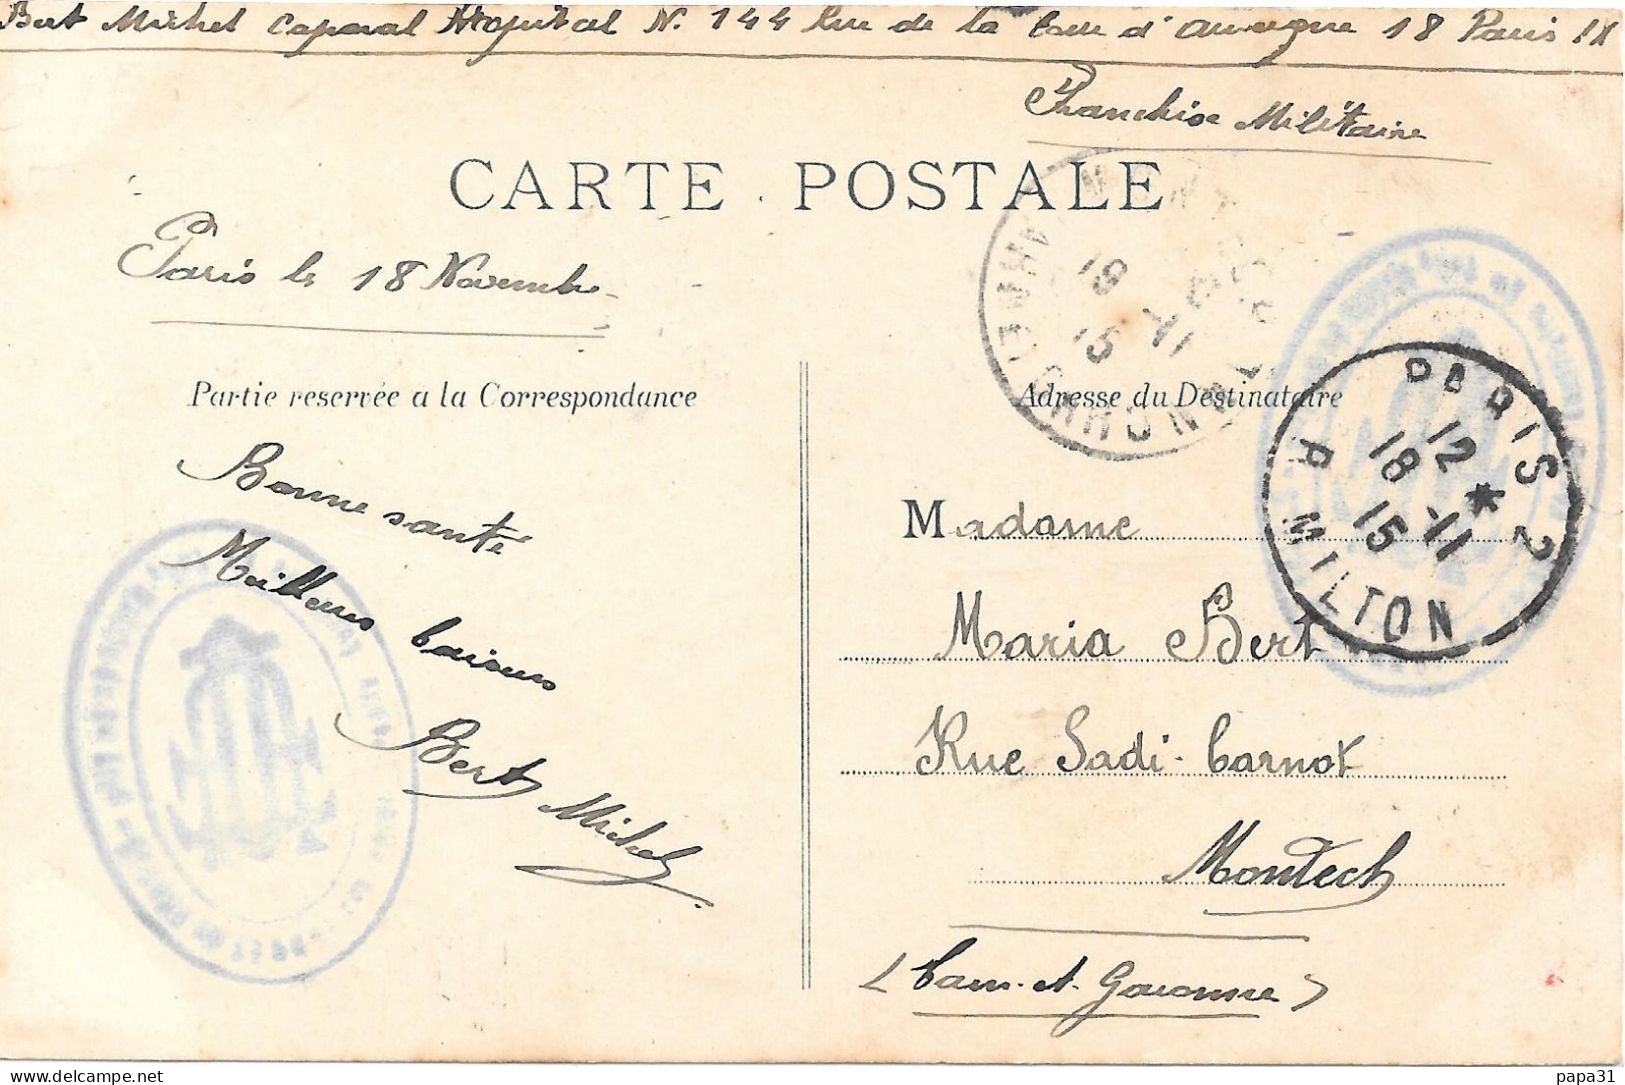 Bert Michel Caporal Hopital N. 144 Rue de la Tour d'Auvergne 18 Paris IX
Franchise Militaire
CARTE POSTALE
Paris le 18 Novembre
Partie reservée a la Correspondance
Adresse du Destinataire
Bonne santé
Meilleurs baisers
Bert Michel
Madame
Maria Bert
Rue Sadi-Carnot
Montech
(Tarn-et-Garonne)
PARIS 2
12 *
18 -11
15
R MILTON
18 -11
15
Delcampe.net
papa31